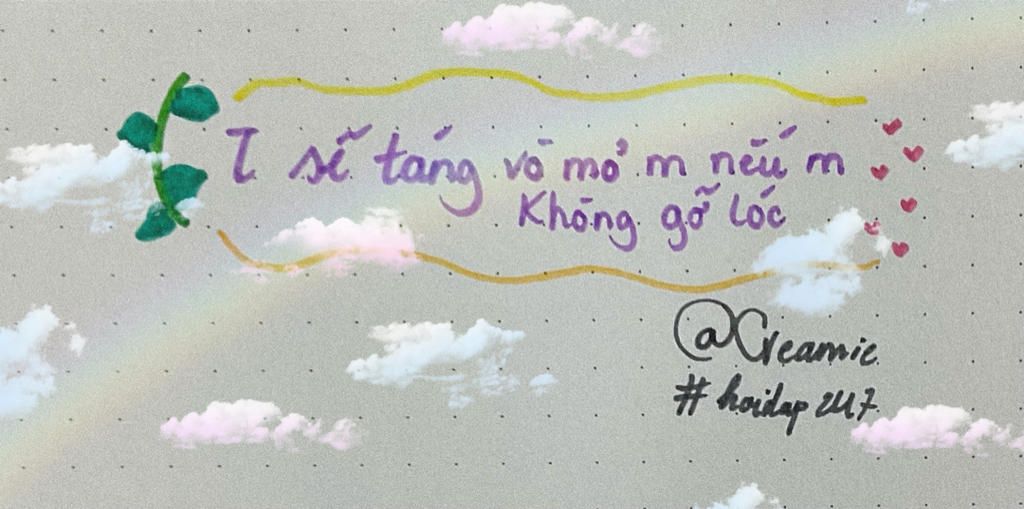 T sẽ táng vō mỏ m nếu m
Không gỡ lóc
@Creamie
#hoidap247